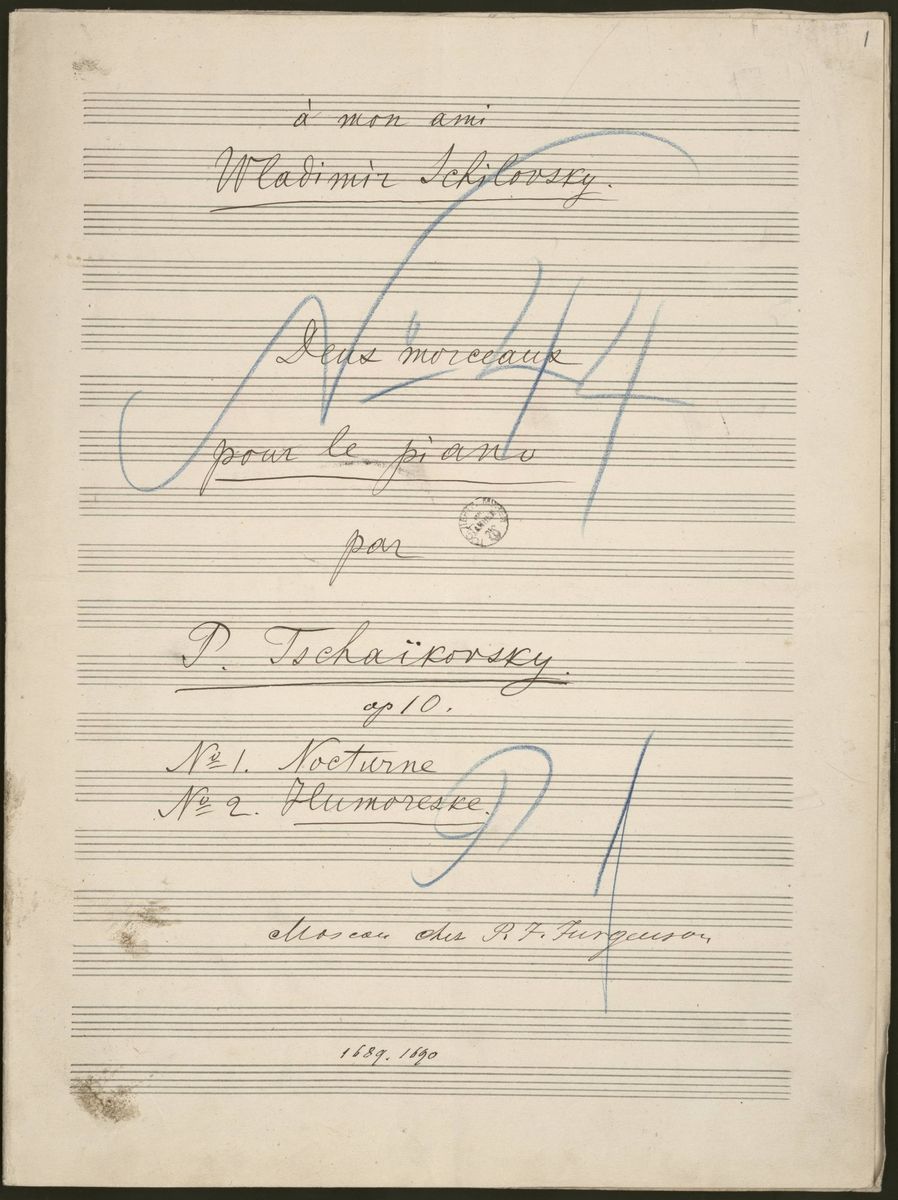 1
à mon ami
Wladimir Schilovsky.
Deux morceaux
No 44
pour le piano
par
P. Tschaïkovsky.
op 10.
No 1. Nocturne
No 2. Humoreske.
Moscou chez P. F. Jurgenson
1689. 1690